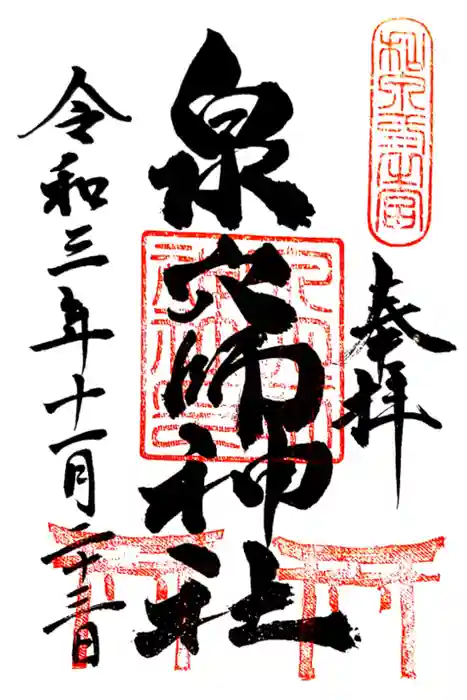 奉拝
泉穴師神社
令和三年十一月二十三日